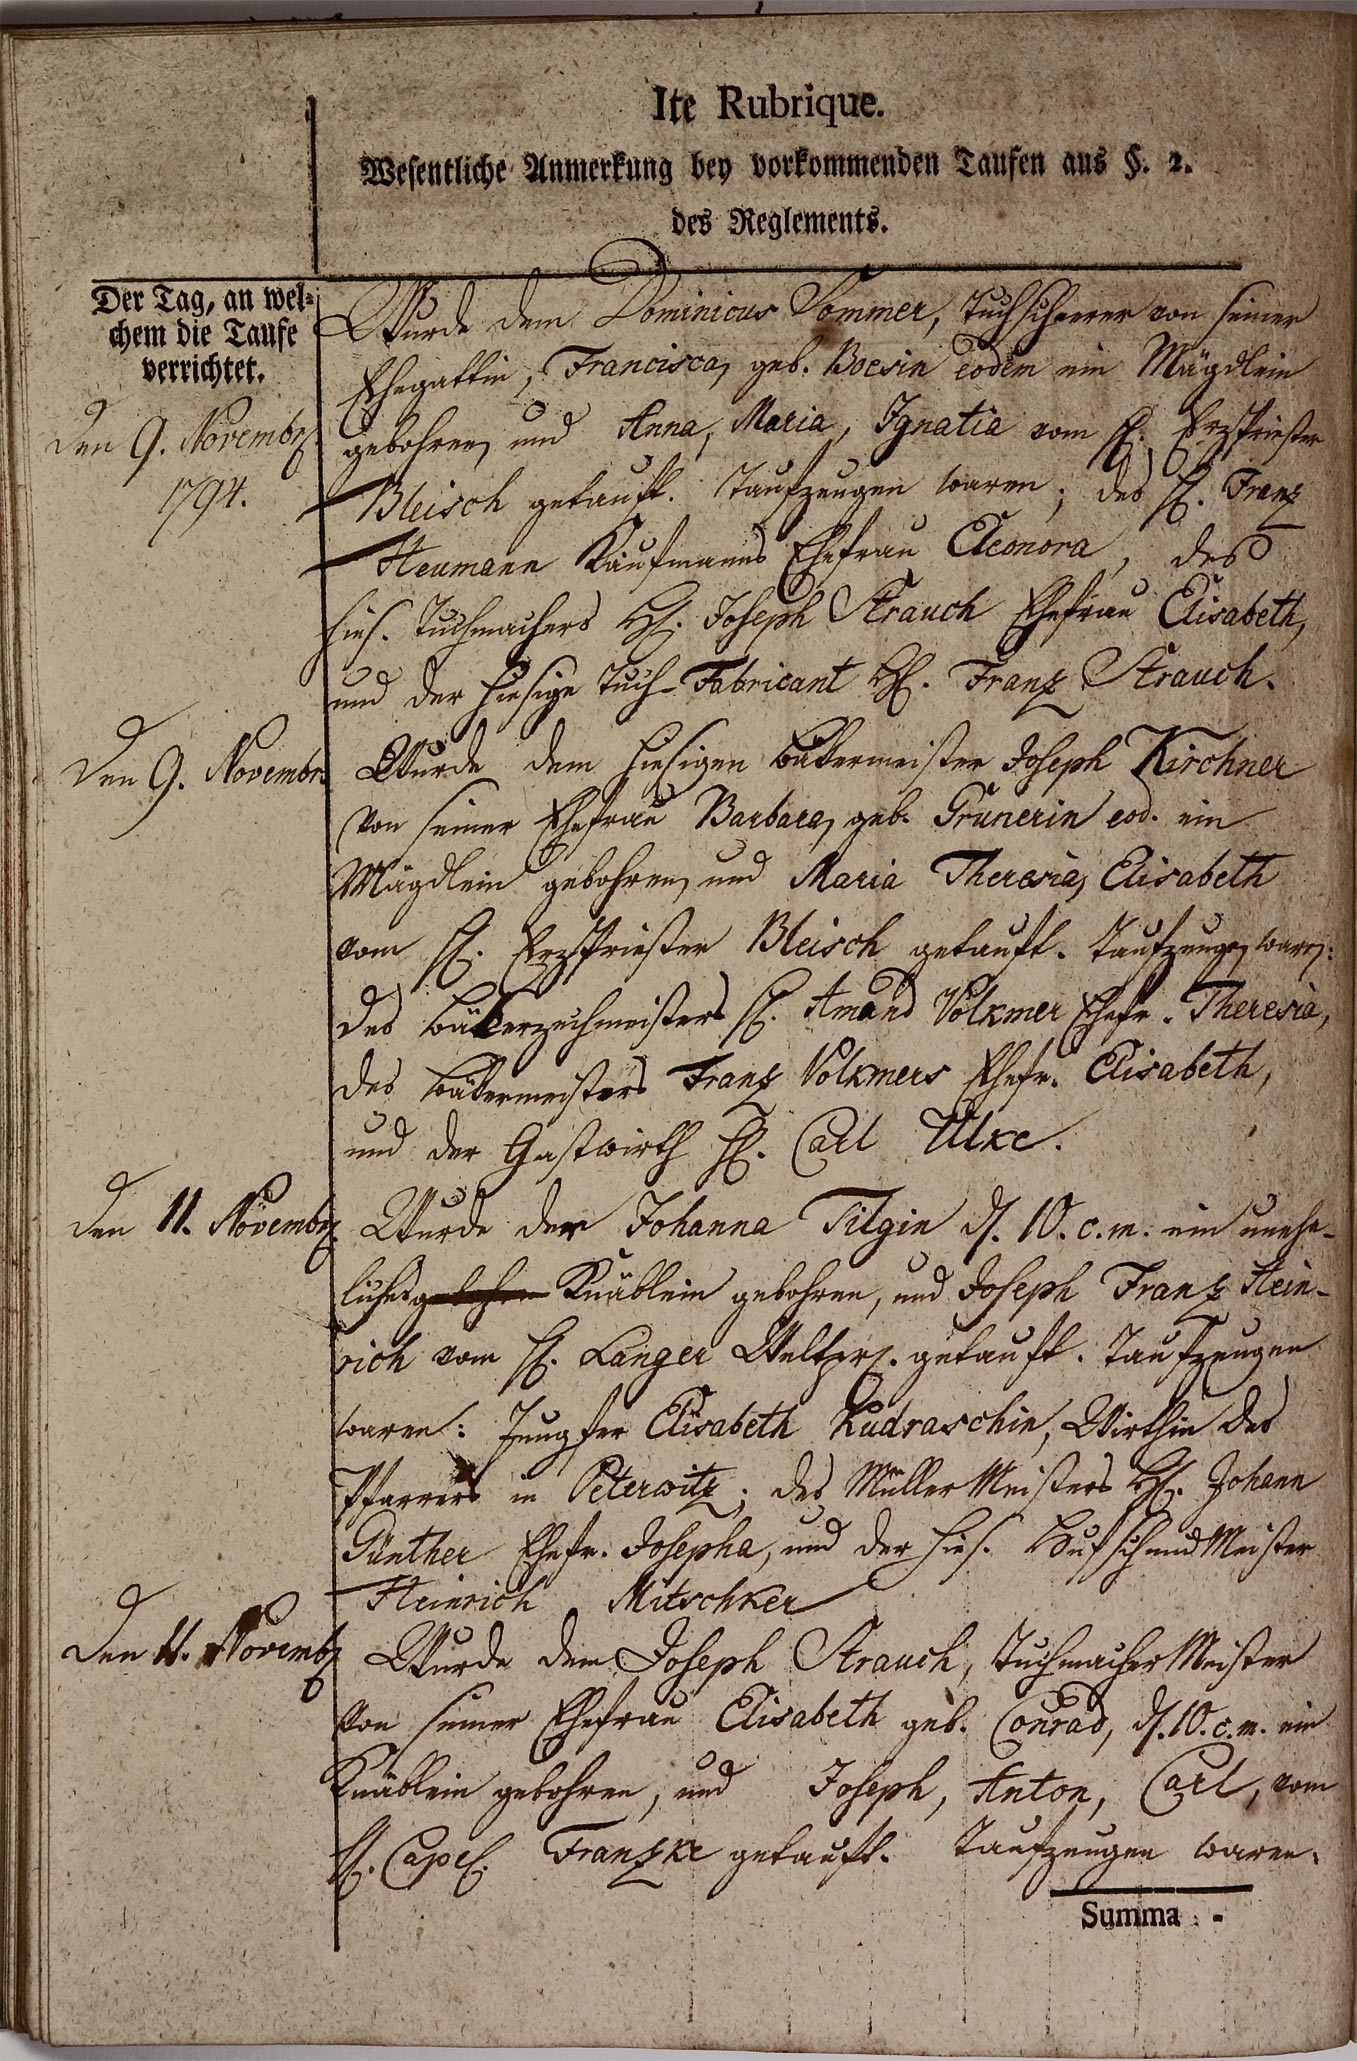 Ite Rubrique.
Wesentliche Anmerkung bey vorkommenden Taufen aus §. 2.
des Reglements.
Der Tag, an wel-
chem die Taufe
verrichtet.
Den 9. Novembr.
1794.
Wurde dem Dominicus Sommer, Tuchscheerer von seiner
Ehegattin, Francisca, geb. Boesin eodem ein Mägdlein
gebohren, und Anna, Maria, Ignatia vom H. Erzpriester
Bleisch getauft. Taufzeugen waren; des H. Franz
Heumann Kaufmanns Ehefrau Eleonora, des
hies. Tuchmachers H. Joseph Strauch Ehefrau Elisabeth,
und der hiesige Tuch-Fabricant H. Franz Strauch.
Den 9. Novembr.
Wurde dem hiesigen Bäkermeister Joseph Kirchner
von seiner Ehefrau Barbara, geb. Grunerin eod. ein
Mägdlein gebohren, und Maria Theresia, Elisabeth
vom H. Erzpriester Bleisch getauft. Taufzeugen waren:
des Bäkerzechmeisters H. Amand Volkmer Ehefr. Theresia,
des Bäkermeisters Franz Volkmers Ehefr. Elisabeth,
und der Gastwirth H. Carl Ulke.
Den 11. Novembr.
Wurde der Johanna Tilgin d. 10. c. m. ein unehe-
liches Knäblein gebohren, und Joseph Franz Hein-
rich vom H. Langer Weltpr. getauft. Taufzeugen
waren: Jungfer Elisabeth Kudraschin, Wirthin des
Pfarrers in Peterwitz; des Müller Meisters H. Johann
Günther Ehefr. Josepha, und der hies. Hufschmid Meister
Heinrich Mitschker
Den 11. Novembr.
Wurde dem Joseph Strauch, Tuchmacher Meister
von seiner Ehefrau Elisabeth geb. Conrad, d. 10. c. m. ein
Knäblein gebohren, und Joseph, Anton, Carl, vom
H. Capel. Franzke getauft. Taufzeugen waren.
Summa : -